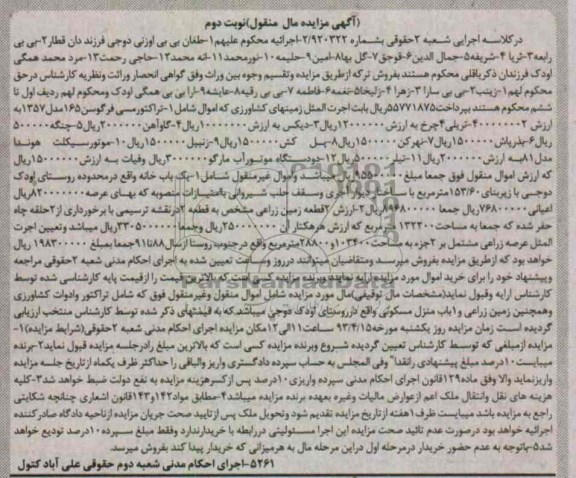 (آگهی مزایده مال منقول)نوبت دوم
درکلاسه اجرایی شعبه ۲حقوقی بشماره ۲/۹۲۰۳۲۲-اجرائیه محکوم علیهم۱-طغان بی بی اوزنی دوجی فرزند دان قطار۲-بی بی
رابعه۳-ثریا ۴-شریفه۵-جمال الدین۶-قوجق۷-گل بها۸-امین۹-حلیمه۱۰-نورمحمد۱۱-انه محمد۱۲-حاجی رحمت۱۳-مرد محمد همگی
اودک فرزندان ذکریاقلی محکوم هستند بفروش ترکه ازطریق مزایده وتقسیم وجوه بین وراث وفق گواهی انحصار وراثت ونظریه کارشناس درحق
محکوم لهم۱-زینب۲-بی بی سارا ۳-زهرا ۴-زلیخا۵-نغمه۶-فاطمه ۷-بی بی رقیه۸-عایشه۹-ارا بی بی همگی اودک ومحکوم لهم ردیف اول تا
ششم محکوم هستند بپرداخت۵۵۷۷۱۸۷۵ریال بابت اجرت المثل زمینهای کشاورزی که اموال شامل۱-تراکتورمسی فرگوسن۱۶۵مدل۱۳۵۷به
ارزش ۲-تریلی۴چرخ به ارزش ریال۳-دیکس به ارزش ریال۴-گاوآهن ریال۵-چنگه
ریال۶-بذرپاش ریال۷-نهرکن ریال۸-پل کش ریال۹-زنبیل ریال۱۰-موتورسیکلت هوندا
مدل۸۱به ارزش ریال۱۱-تیلر ریال۱۲-دودستگاه موتورآب مارکو ریال وفیات به ارزش ریال
که ارزش اموال منقول فوق جمعا مبلغ ریال میباشد واموال غیرمنقول شامل۱-یک باب خانه واقع درمحدوده روستای اودک
دوجی با زیربنای۱۵۳/۶۰مترمربع با دیوار آجری وسقف حلب شیروانی باامتیازات منصوبه که بهای عرصه ۸۲۰۰۰۰۰۰ریال
اعیانی ۷۶۸۰۰۰۰۰ریال جمعا ریال۲-ارزش ۲قطعه زمین زراعی مشخص به قطعه ۲درنقشه ترسیمی با برخورداری از۲حلقه چاه
حفر شده که جمعا به مساحت ۱۳۲۲۰۰مترمربع که ارزش هرهکتار آن ریال وجمعا ریال میباشد وتعیین اجرت
المثل عرصه زراعی مشتمل بر ۲جزء به مساحت ۱۰۳۴۰۰و۲۸۸۰۰مترمربع واقع درجنوب روستا ازسال۸۸تا۹۱جمعا بمبلغ ریال
خواهد بود که ازطریق مزایده بفروش میرسد ومتقاضیان میتوانند درروز وساعت تعیین شده به اجرای احکام مدنی شعبه ۲حقوقی مراجعه
وپیشنهاد خود را برای خرید اموال مورد مزایده ارایه نمایند وبرنده مزایده کسی است که بالاترین قیمت را ازقیمت پایه کارشناسی شده توسط
کارشناس ارایه وقبول نماید(مشخصات مال توقیفی)مال مورد مزایده شامل اموال منقول وغیرمنقول فوق که شامل تراکتور وادوات کشاورزی
وهمچنین زمین زراعی و۱باب منزل مسکونی واقع درروستای اودک دوجی میباشد که به قیمتهای ذکر شده توسط کارشناس منتخب ارزیابی
گردیده است زمان مزایده روز یکشنبه مورخه۹۳/۴/۱۵ ساعت۱۱الی۱۲مکان مزایده اجرای احکام مدنی شعبه ۲حقوقی(شرایط مزایده)۱-
مزایده ازمبلغی که توسط کارشناس تعیین گردیده شروع وبرنده مزایده کسی است که بالاترین مبلغ رادرجلسه مزایده قبول نماید۲-برنده
میبایست۱۰درصد مبلغ پیشنهادی رانقدا" وفی المجلس به حساب سپرده دادگستری واریز والباقی را حداکثر ظرف یکماه ازتاریخ جلسه مزایده
واریزنماید والا وفق ماده۱۲۹قانون اجرای احکام مدنی سپرده واریزی ۱۰درصد پس ازکسرهزینه مزایده به نفع دولت ضبط خواهد شد۳-کلیه
هزینه های نقل وانتقال ملک اعم ازعوارض مالیات وغیره بعهده برنده مزایده میباشد۴-مطابق مواد۱۴۲و۱۴۳قانون اشعاری چنانچه شکایتی
راجع به مزایده باشد میبایست ظرف۱هفته ازتاریخ مزایده تقدیم شود وتحویل ملک پس ازتایید صحت جریان مزایده ازناحیه دادگاه صادرکننده
اجرائیه خواهد بود درصورت عدم تائید صحت مزایده این اجرا مسئولیتی دررابطه با خریدارندارد وفقط مبلغ سپرده ۱۰درصد تودیع خواهد
شد۵-باتوجه به عدم حضور خریدار درمرحله اول دراین مرحله مال به هرمیزانی که خریدار پیدا کند بفروش میرسد.
۵۲۶۱-اجرای احکام مدنی شعبه دوم حقوقی علی آباد کتول
ParsNamadData